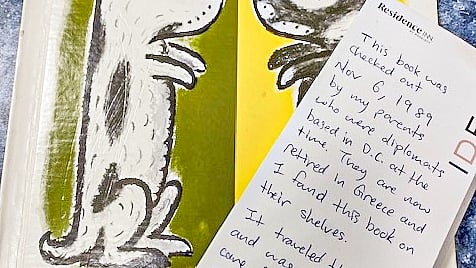 Residence INN
This book was
checked out
Nov 6, 1989
by my parents
who were diplomats
based in D.C. at the
time. They are now
retired in Greece and
I found this book on
their shelves.
It traveled th
and was
came